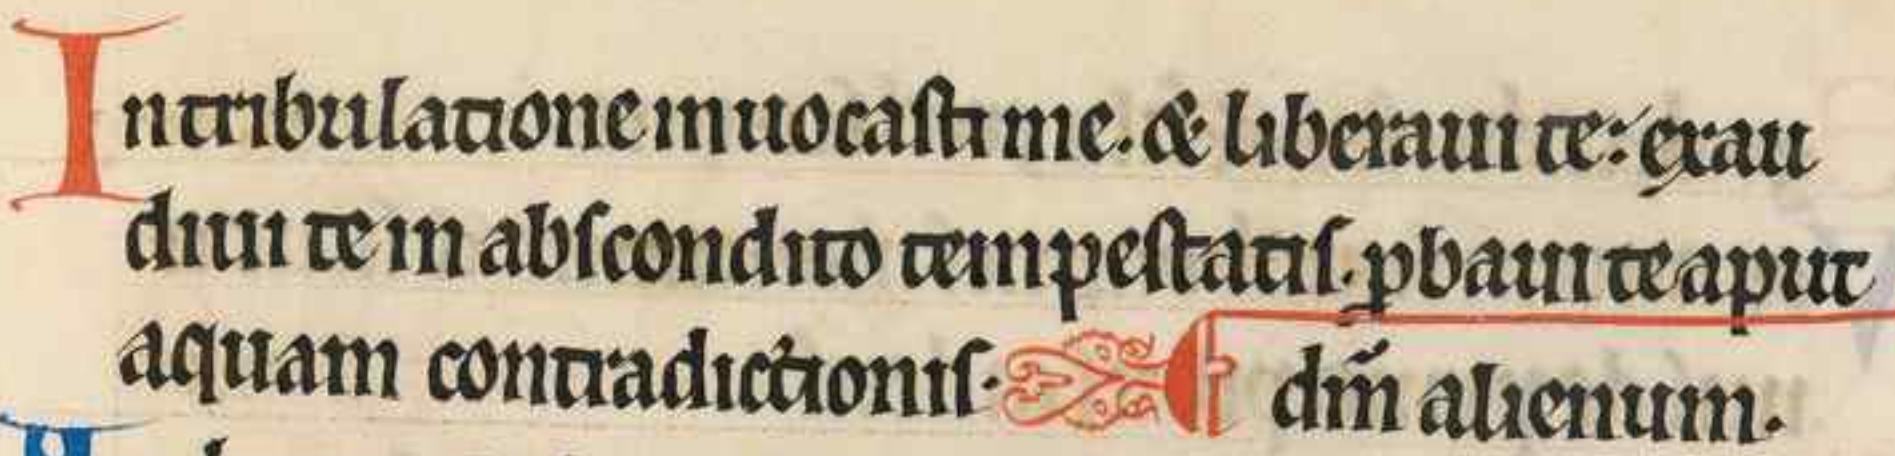 In tribulatione inuocasti me. & liberaui te: exau
diui te in abscondito tempestatis. ꝓbaui te aput
aquam contradictionis. dm̅ alienum.